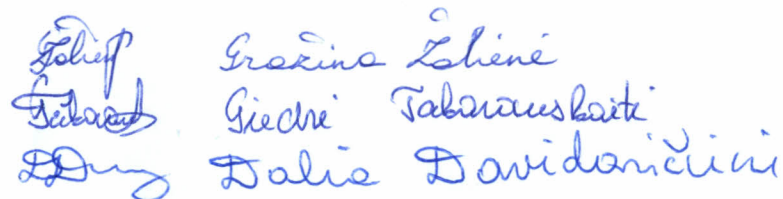 Gražina Žalienė
Giedrė Tabarauskaitė
Dalia Davidavičienė